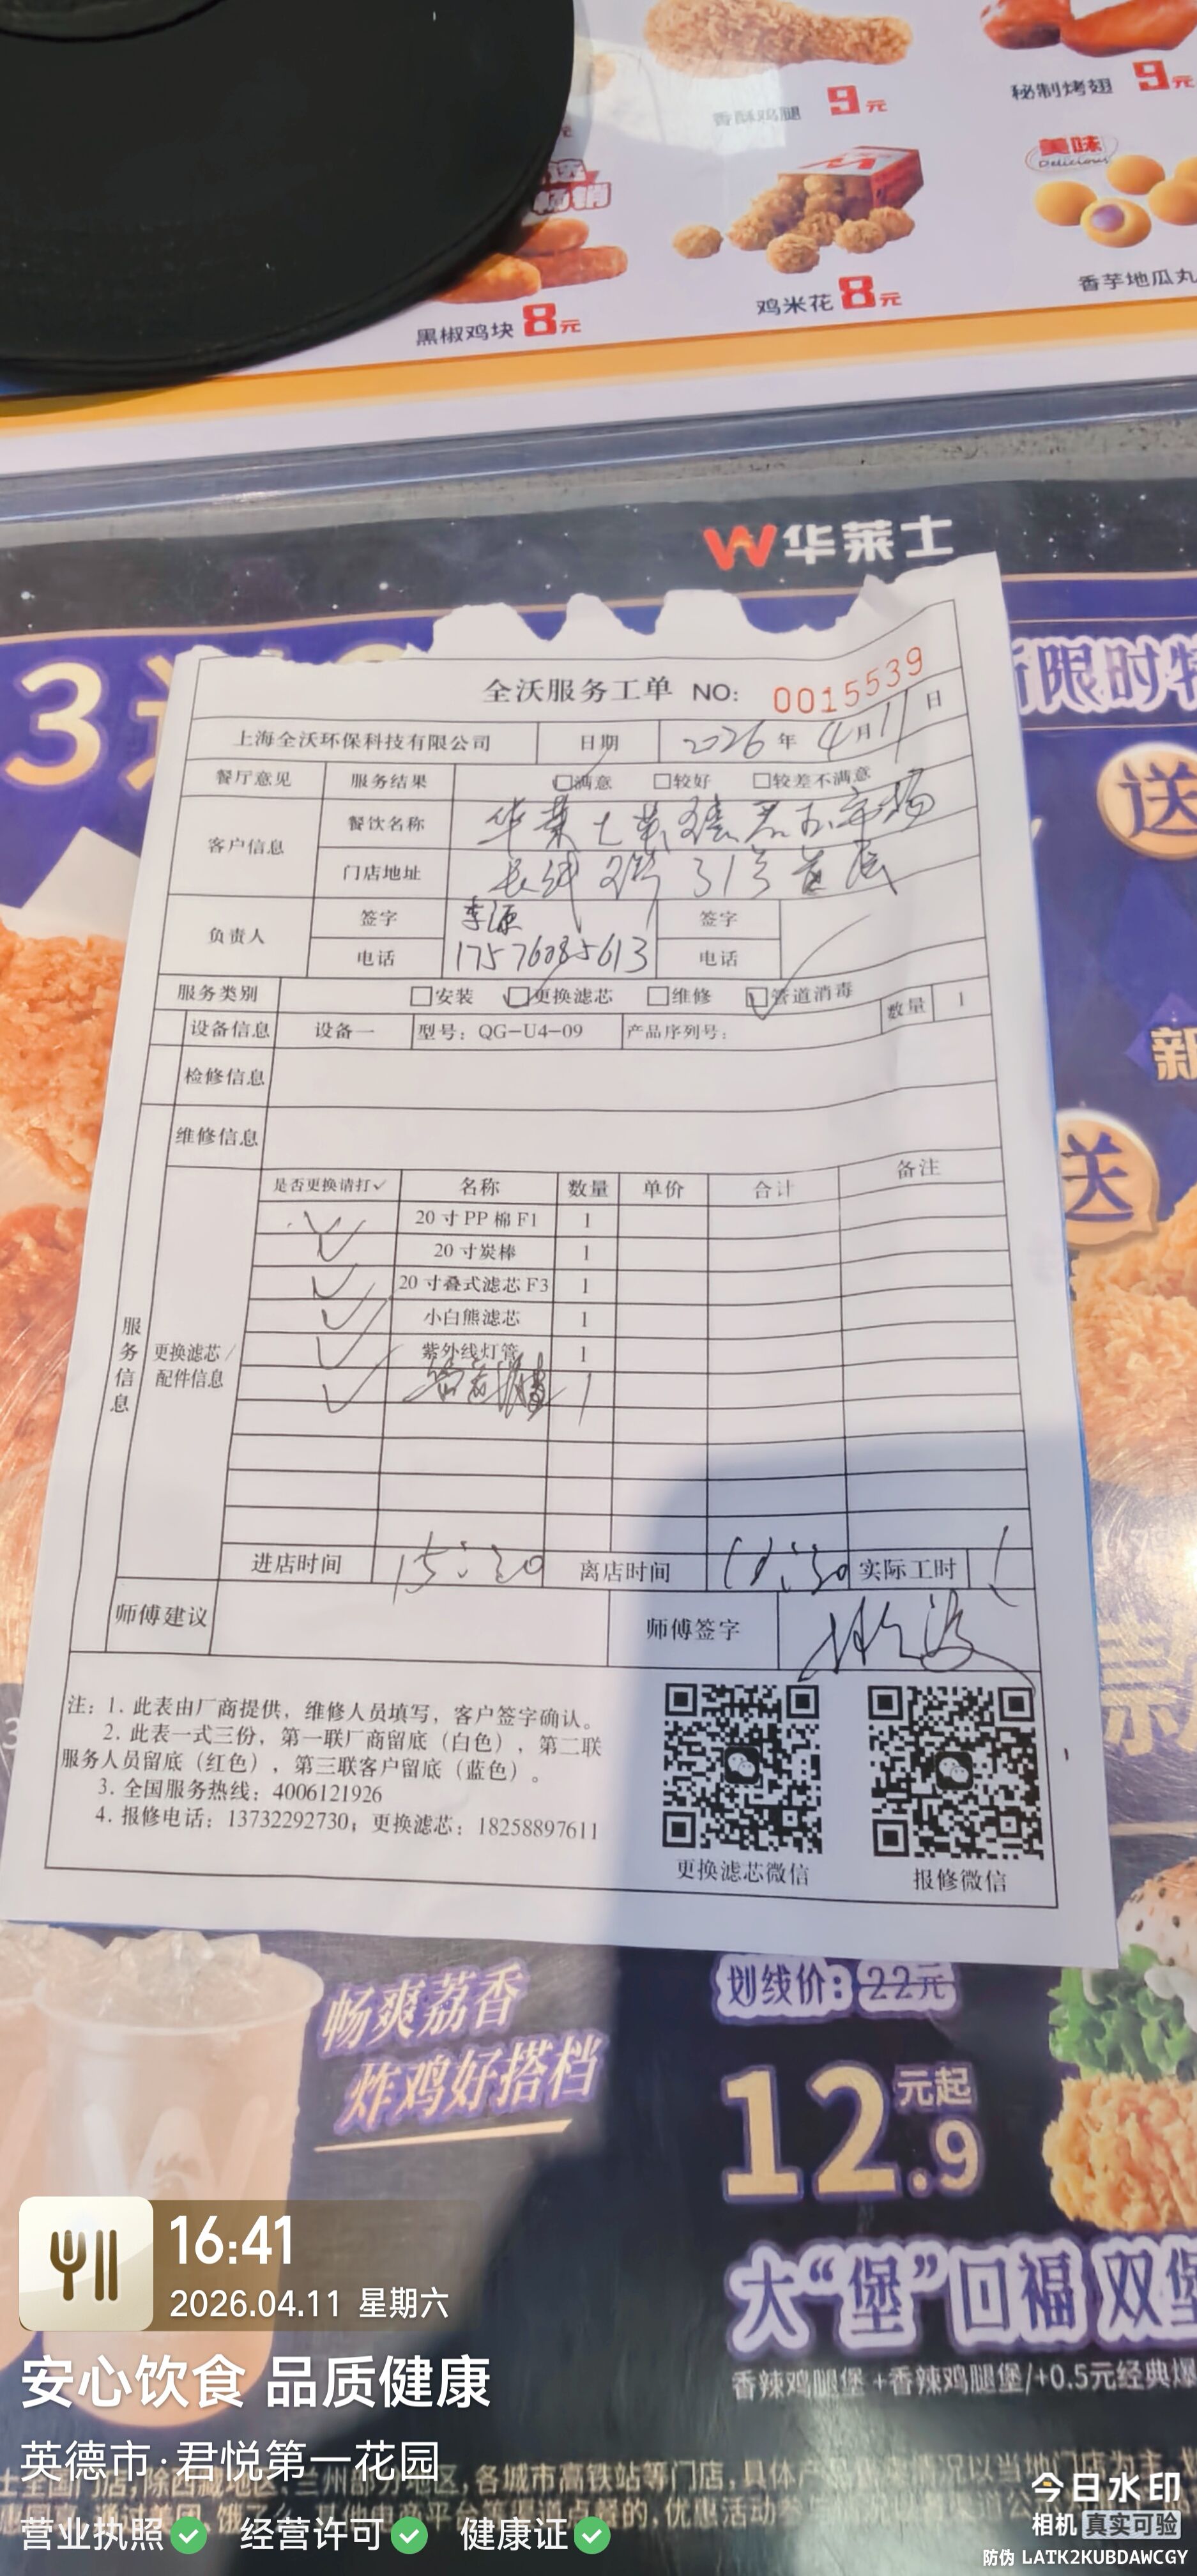 香酥鸡腿 9元
秘制烤翅 9元
美味
Delicious
畅销
黑椒鸡块 8元
鸡米花 8元
香芋地瓜丸
华莱士
3
限时特
送
新
送
全沃服务工单 NO: 0015539
上海全沃环保科技有限公司 日期 2026年4月11日
餐厅意见 服务结果 满意 较好 较差不满意
客户信息 餐饮名称 华莱士英德君西市场
门店地址 31号首层
负责人 签字 李源 签字
电话 17576085613 电话
服务类别 安装 更换滤芯 维修 管道消毒
设备信息 设备一 型号: QG-U4-09 产品序列号: 数量 1
检修信息
维修信息
服务信息 更换滤芯/配件信息
是否更换请打✓ 名称 数量 单价 合计 备注
✓ 20寸PP棉F1 1
✓ 20寸炭棒 1
✓ 20寸叠式滤芯F3 1
✓ 小白熊滤芯 1
✓ 紫外线灯管 1
✓ 管道消毒 1
进店时间 15:30 离店时间 实际工时 1
师傅建议 师傅签字
注: 1. 此表由厂商提供, 维修人员填写, 客户签字确认。
2. 此表一式三份, 第一联厂商留底(白色), 第二联
服务人员留底(红色), 第三联客户留底(蓝色)。
3. 全国服务热线: 4006121926
4. 报修电话: 13732292730; 更换滤芯: 18258897611
更换滤芯微信 报修微信
畅爽荔香
炸鸡好搭档
划线价: 22元
12.9元起
大“堡”回福 双堡
香辣鸡腿堡+香辣鸡腿堡/+0.5元经典
16:41
2026.04.11 星期六
安心饮食 品质健康
英德市·君悦第一花园
营业执照 经营许可 健康证
今日水印
相机 真实可验
防伪 LATK2KUBDAWCGY